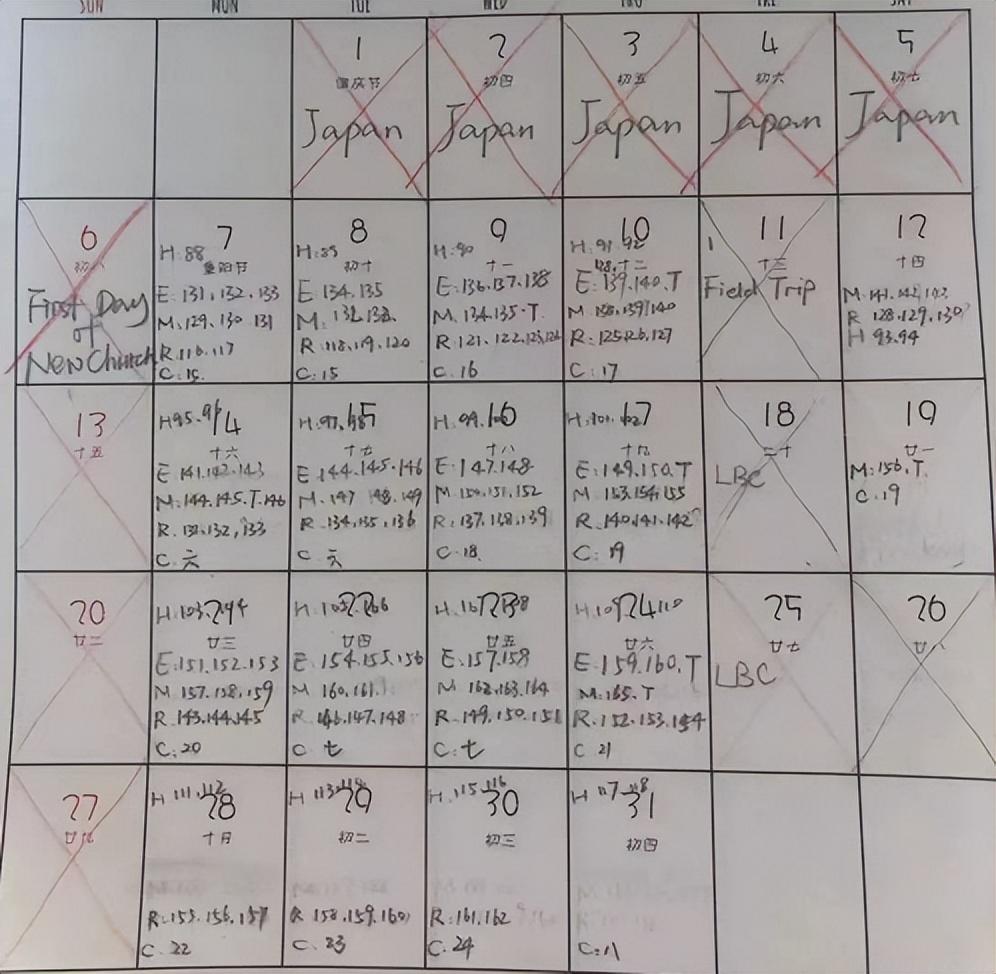 SUN MON TUE WED THU FRI SAT
1
国庆节
Japan
2
初四
Japan
3
初五
Japan
4
初六
Japan
5
初七
Japan
6
初八
First Day
of
New Church
H:88
7
重阳节
E:131,132,133
M:129,130,131
R:116,117
C:15.
H:89
8
初十
E:134,135
M:132,133
R:118,119,120
C:15
H:90
9
十一
E:136,137,138
M:134,135-T.
R:121,122,123,124
C:16
H:91,92
10
十二
E:139,140,T
M:138,139,140
R:125,126,127
C:17
11
十三
Field Trip
12
十四
M:141,142,143
R 128,129,130
H 93,94
13
十五
H:95.96
14
十六
E:141.142.143
M:144.145.T.146
R.131,132,133
C.六
H:97.98
15
十七
E.144.145.146
M.147 148.149
R.134.135.136
C.六
H:99.100
16
十八
E:147.148
M.150.151.152
R:137.138.139
C.18.
H:101.102
17
十九
E:149.150.T
M:153.154.155
R:140.141.142
C:19
18
二十
LBC
19
廿一
M:156.T.
C.19
20
廿二
H:103.104
21
廿三
E:151.152.153
M 157.158.159
R:143.144.145
C:20
H:105.106
22
廿四
E:154.155.156
M 160.161.
R 146.147.148
C 七
H:107.108
23
廿五
E:157.158
M 162.163.164
R.149.150.151
C:七
H:109.110
24
廿六
E:159.160.T
M:165.T
R:152.153.154
C 21
25
廿七
LBC
26
廿八
27
廿九
H 111.112
28
十月
R:155.156.157
C.22
H 113.114
29
初二
R 158.159.160
C.23
H.115.116
30
初三
R:161.162
C.24
H 117.118
31
初四
C:八